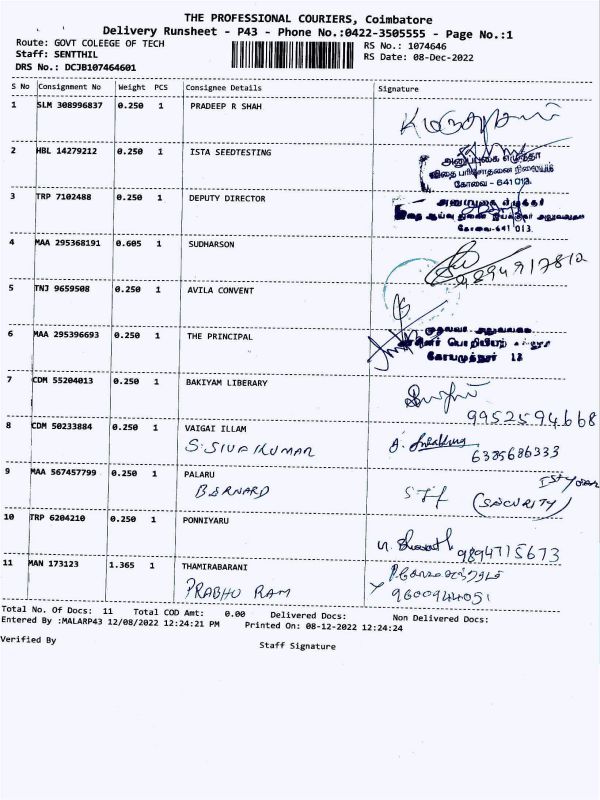 THE PROFESSIONAL COURIERS, Coimbatore
Delivery Runsheet - P43 - Phone No.:0422-3505555 - Page No.:1
Route: GOVT COLEEGE OF TECH
RS No.: 1074646
Staff: SENTTHIL
RS Date: 08-Dec-2022
DRS No.: DCJB107464601
S No Consignment No Weight PCS Consignee Details Signature
1 SLM 308996837 0.250 1 PRADEEP R SHAH
2 HBL 14279212 0.250 1 ISTA SEEDTESTING
அனுப்புகை எழுத்தர்
விதை பரிசோதனை நிலையம்
கோவை - 641 013.
3 TRP 7102488 0.250 1 DEPUTY DIRECTOR
கோவை-641 013.
4 MAA 295368191 0.605 1 SUDHARSON
5 TNJ 9659508 0.250 1 AVILA CONVENT
6 MAA 295396693 0.250 1 THE PRINCIPAL
கோயமுத்தூர் 13
7 CDM 55204013 0.250 1 BAKIYAM LIBERARY
9952594668
8 CDM 50233884 0.250 1 VAIGAI ILLAM
S.SIVA KUMAR
6385686333
9 MAA 567457799 0.250 1 PALARU
BERNARD
Ist year
(SECURITY)
10 TRP 6204210 0.250 1 PONNIYARU
9894715673
11 MAN 173123 1.365 1 THAMIRABARANI
PRABHU RAM
9600944051
Total No. Of Docs: 11 Total COD Amt: 0.00 Delivered Docs: Non Delivered Docs:
Entered By :MALARP43 12/08/2022 12:24:21 PM Printed On: 08-12-2022 12:24:24
Verified By
Staff Signature